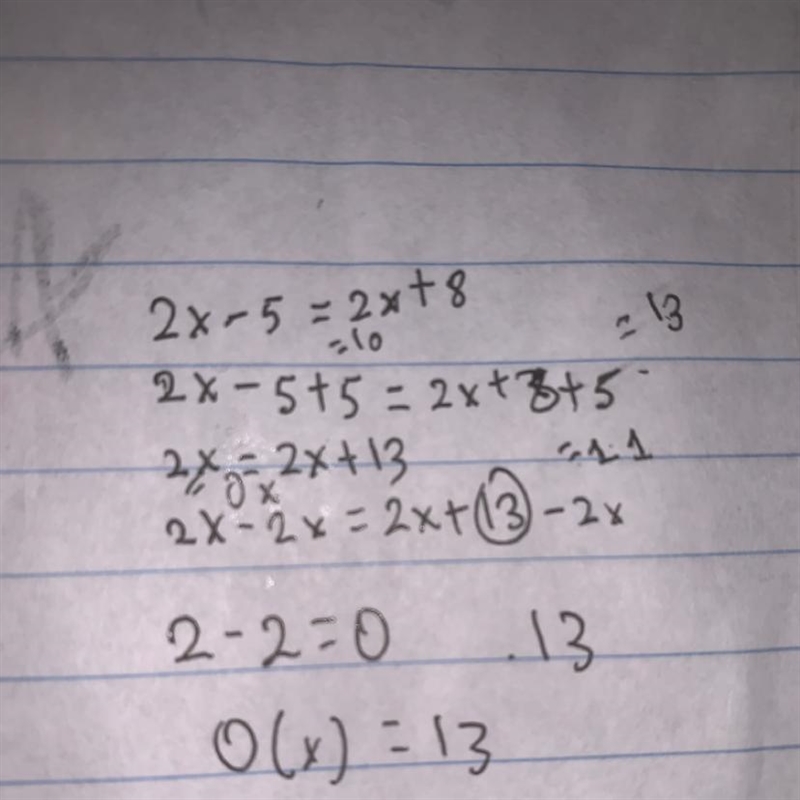 2x - 5 = 2x + 8
= 10
= 13
2x - 5 + 5 = 2x + 8 + 5
2x = 2x + 13
= 11
= 0x
2x - 2x = 2x + 13 - 2x
2 - 2 = 0 .13
0(x) = 13